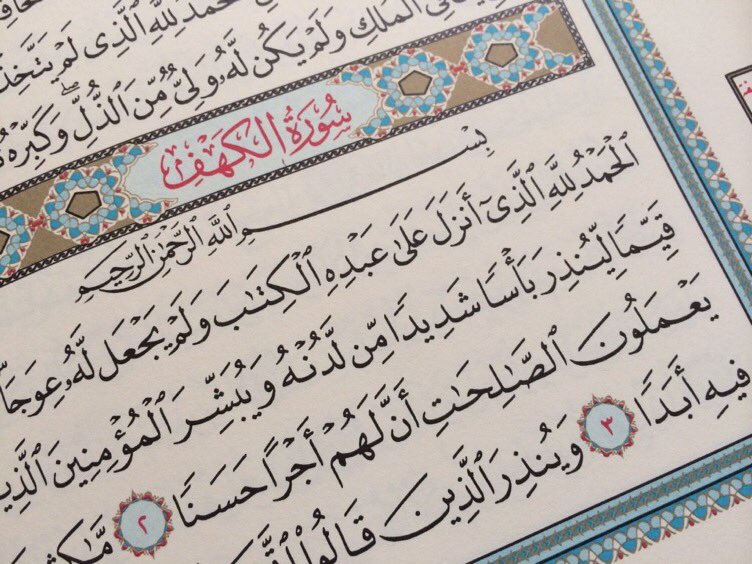 لِلَّهِ ٱلَّذِى لَمْ يَتَّخِذْ
فِى ٱلْمُلْكِ وَلَمْ يَكُن لَّهُۥ وَلِىٌّ مِّنَ ٱلذُّلِّ ۖ وَكَبِّرْهُ
سُورَةُ ٱلْكَهْفِ
بِسْمِ ٱللَّهِ ٱلرَّحْمَٰنِ ٱلرَّحِيمِ
ٱلْحَمْدُ لِلَّهِ ٱلَّذِىٓ أَنزَلَ عَلَىٰ عَبْدِهِ ٱلْكِتَٰبَ وَلَمْ يَجْعَل لَّهُۥ عِوَجَا
قَيِّمًا لِّيُنذِرَ بَأْسًا شَدِيدًا مِّن لَّدُنْهُ وَيُبَشِّرَ ٱلْمُؤْمِنِينَ ٱلَّذِي
يَعْمَلُونَ ٱلصَّٰلِحَٰتِ أَنَّ لَهُمْ أَجْرًا حَسَنًا ٢
فِيهِ أَبَدًا ٣ وَيُنذِرَ ٱلَّذِينَ قَالُوا۟